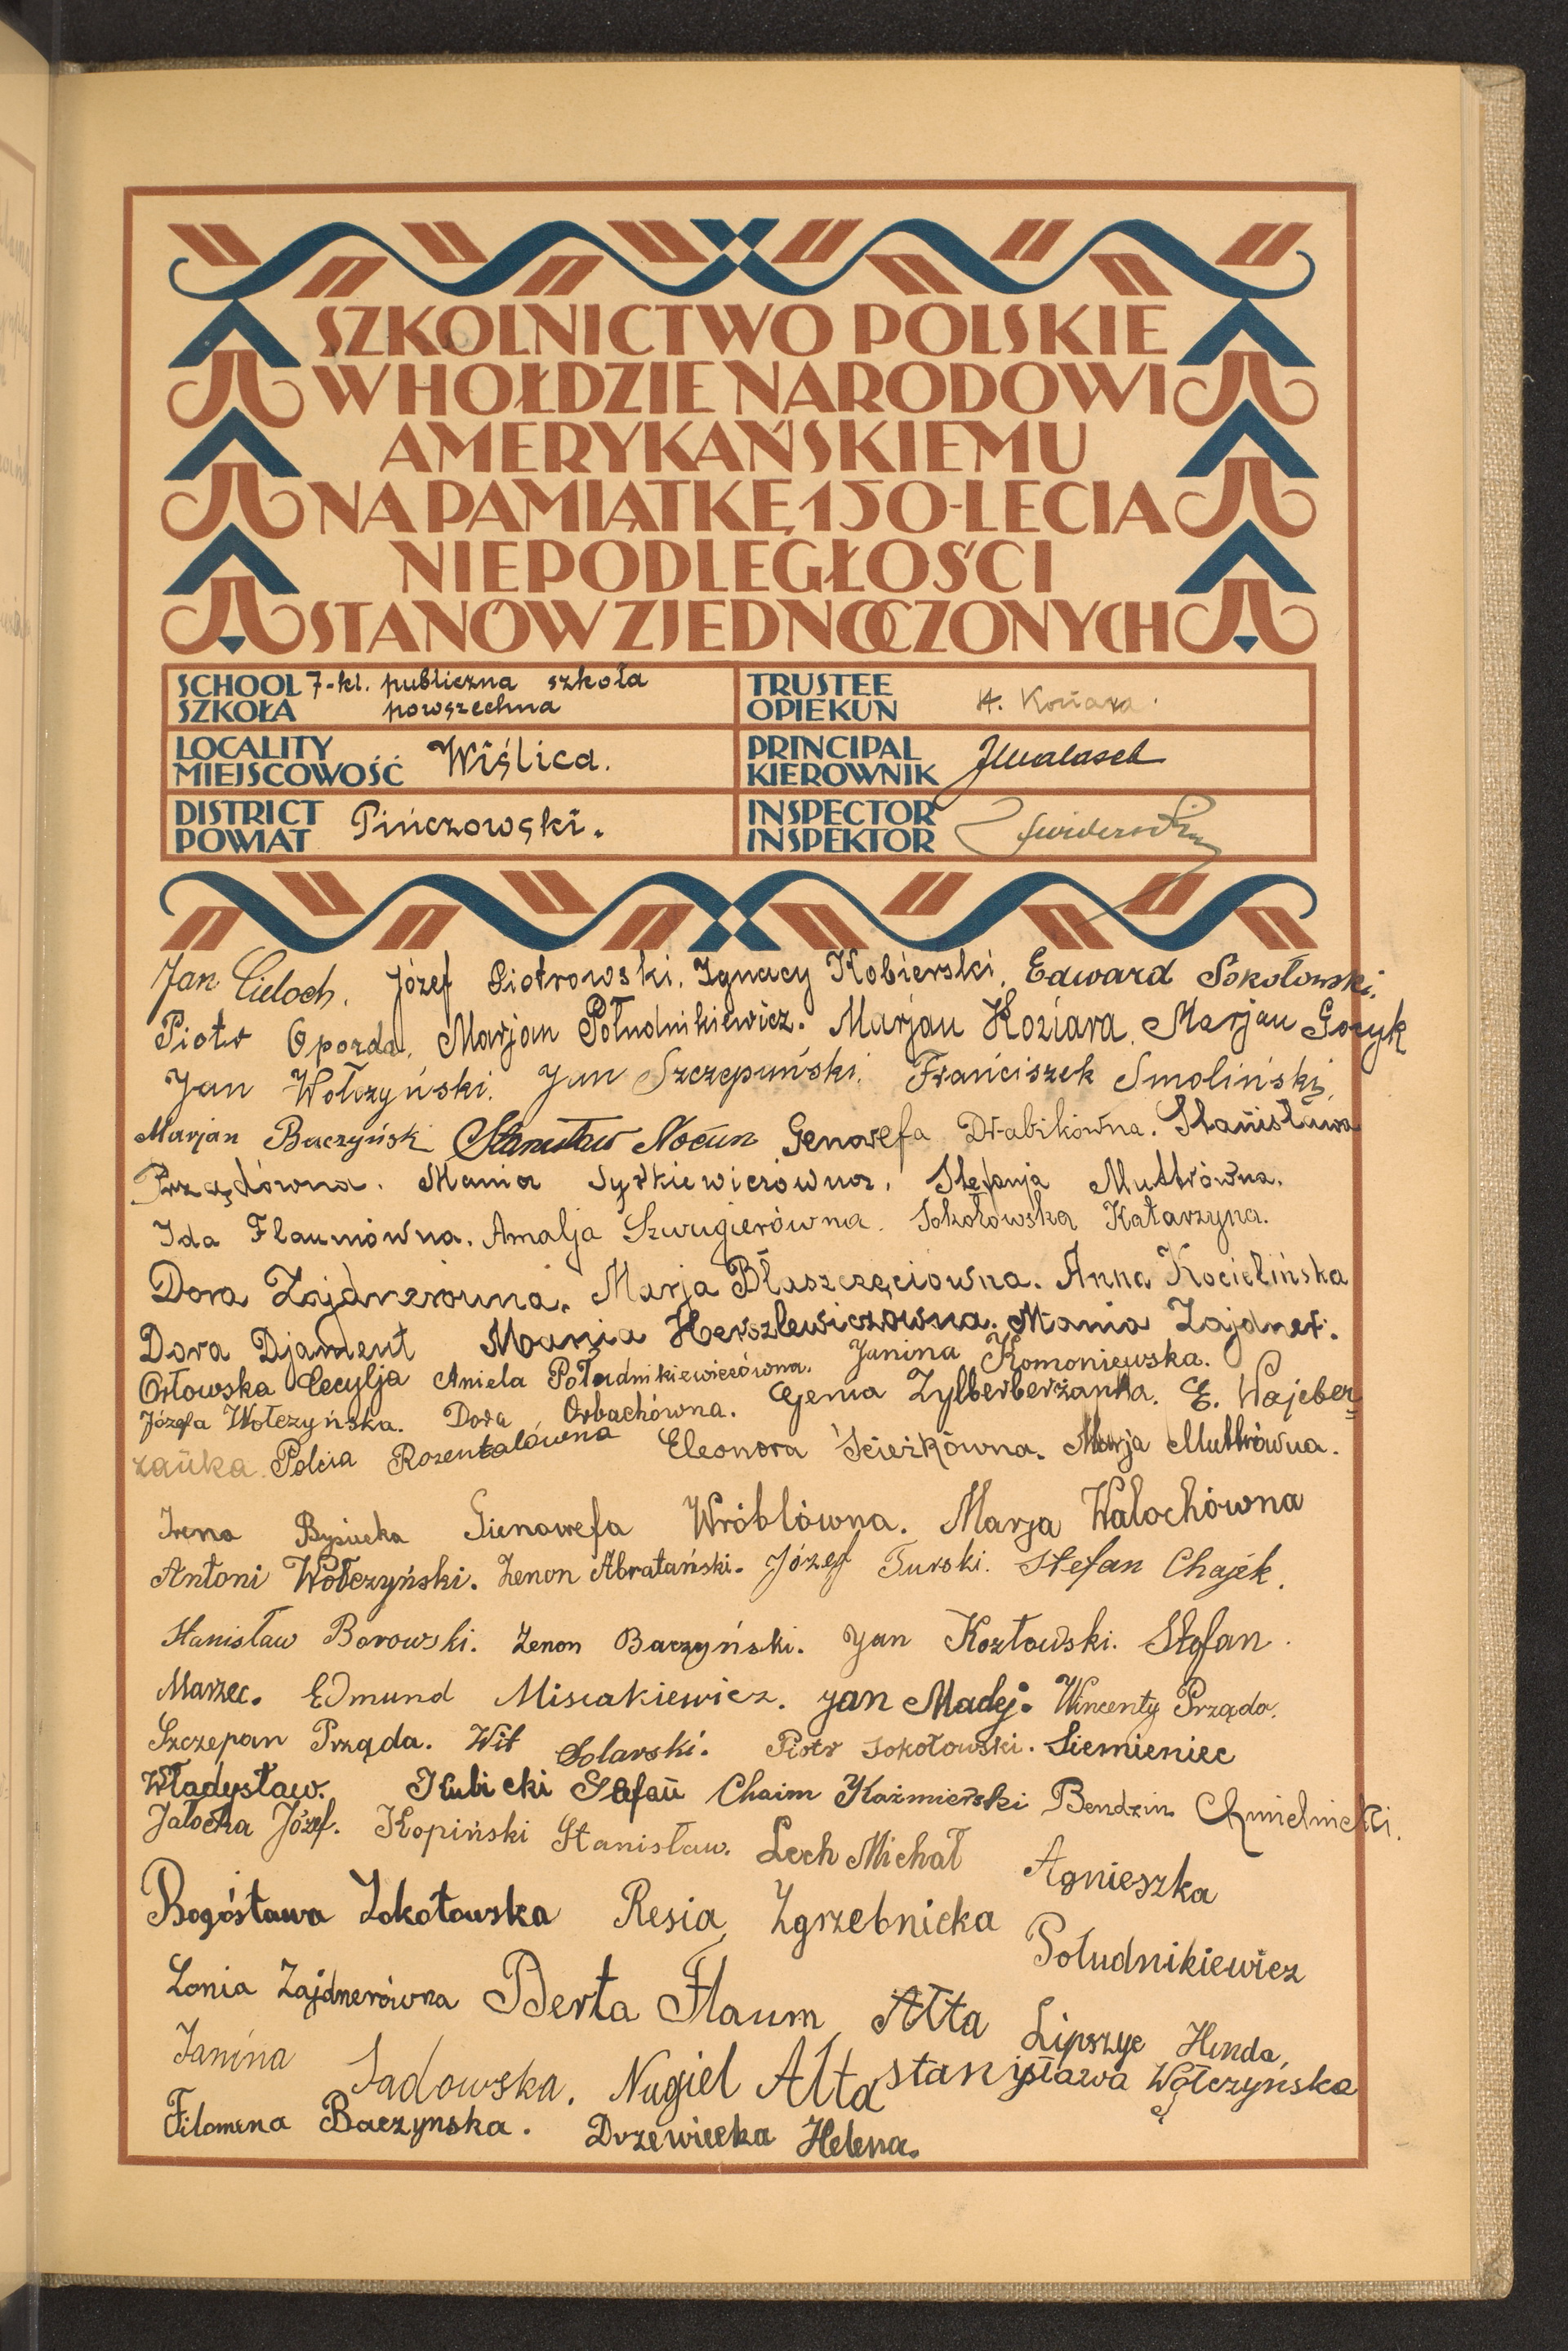 SZKOLNICTWO POLSKIE
W HOŁDZIE NARODOWI
AMERYKAŃSKIEMU
NA PAMIĄTKĘ 150-LECIA
NIEPODLEGŁOŚCI
STANÓW ZJEDNOCZONYCH
SCHOOL 7-kl. publiczna szkoła
SZKOŁA powszechna
TRUSTEE
OPIEKUN
LOCALITY
MIEJSCOWOŚĆ Wiślica.
PRINCIPAL
KIEROWNIK JWalasek
DISTRICT
POWIAT Pińczowski.
INSPECTOR
INSPEKTOR
Jan Cieloch. Józef Piotrowski. Ignacy Kobierski. Edward Sokołowski.
Piotr Oporda. Marjan Południkiewicz. Marjan Koziara. Marjan Gocyk
Jan Wołczyński. Jan Szczepański. Franciszek Smoliński
Marjan Baczyńsk Stanisław Nocuń Genowefa Drabikówna. Stanisława
Prządówna. Mania Syrkiewiczówna. Stefanja Muttrówna.
Ida Flaumówna. Amalja Szwugierówna. Sokołowska Katarzyna.
Dora Zajdnerówna. Marja Błaszczęciowna. Anna Kocielińska
Dora Djament Mania Herszlewiczowna. Mania Zajdner.
Orłowska Cecylja Aniela Południkiewiczówna. Janina Komoniewska.
Józefa Wołczyńska. Dora Orbachówna. Genia Zylberberżanka. E. Wajcber
żańka Polcia Rozentalówna Eleonora Ścieżkówna. Marja Muttrówna.
Irena Bysiecka Gienowefa Wróblówna. Marja Wałochówna
Antoni Wołczyński. Zenon Abratański. Józef Turski. Stefan Chajek.
Stanisław Borowski. Zenon Baczyński. Jan Kozłowski. Stefan
Marzec. Edmund Misiakiewicz. Jan Madej. Wincenty Prząda.
Szczepan Prząda. Wit Solarski. Piotr Sokołowski. Siemieniec
Władysław. Kubicki Stefan Chaim Kaźmierski Bendzin Chmielnicki.
Jałocha Józef. Kopiński Stanisław. Lech Michał Agnieszka
Bogósława Zokołowska Resia Zgrzebnicka Południkiewicz
Lonia Zajdnerówna Berta Flaum Ałta Lipszyc Henda,
Janina Sadowska. Nugiel Alta Stanisława Wołczyńska
Filomena Baczynska. Drzewiecka Helena.